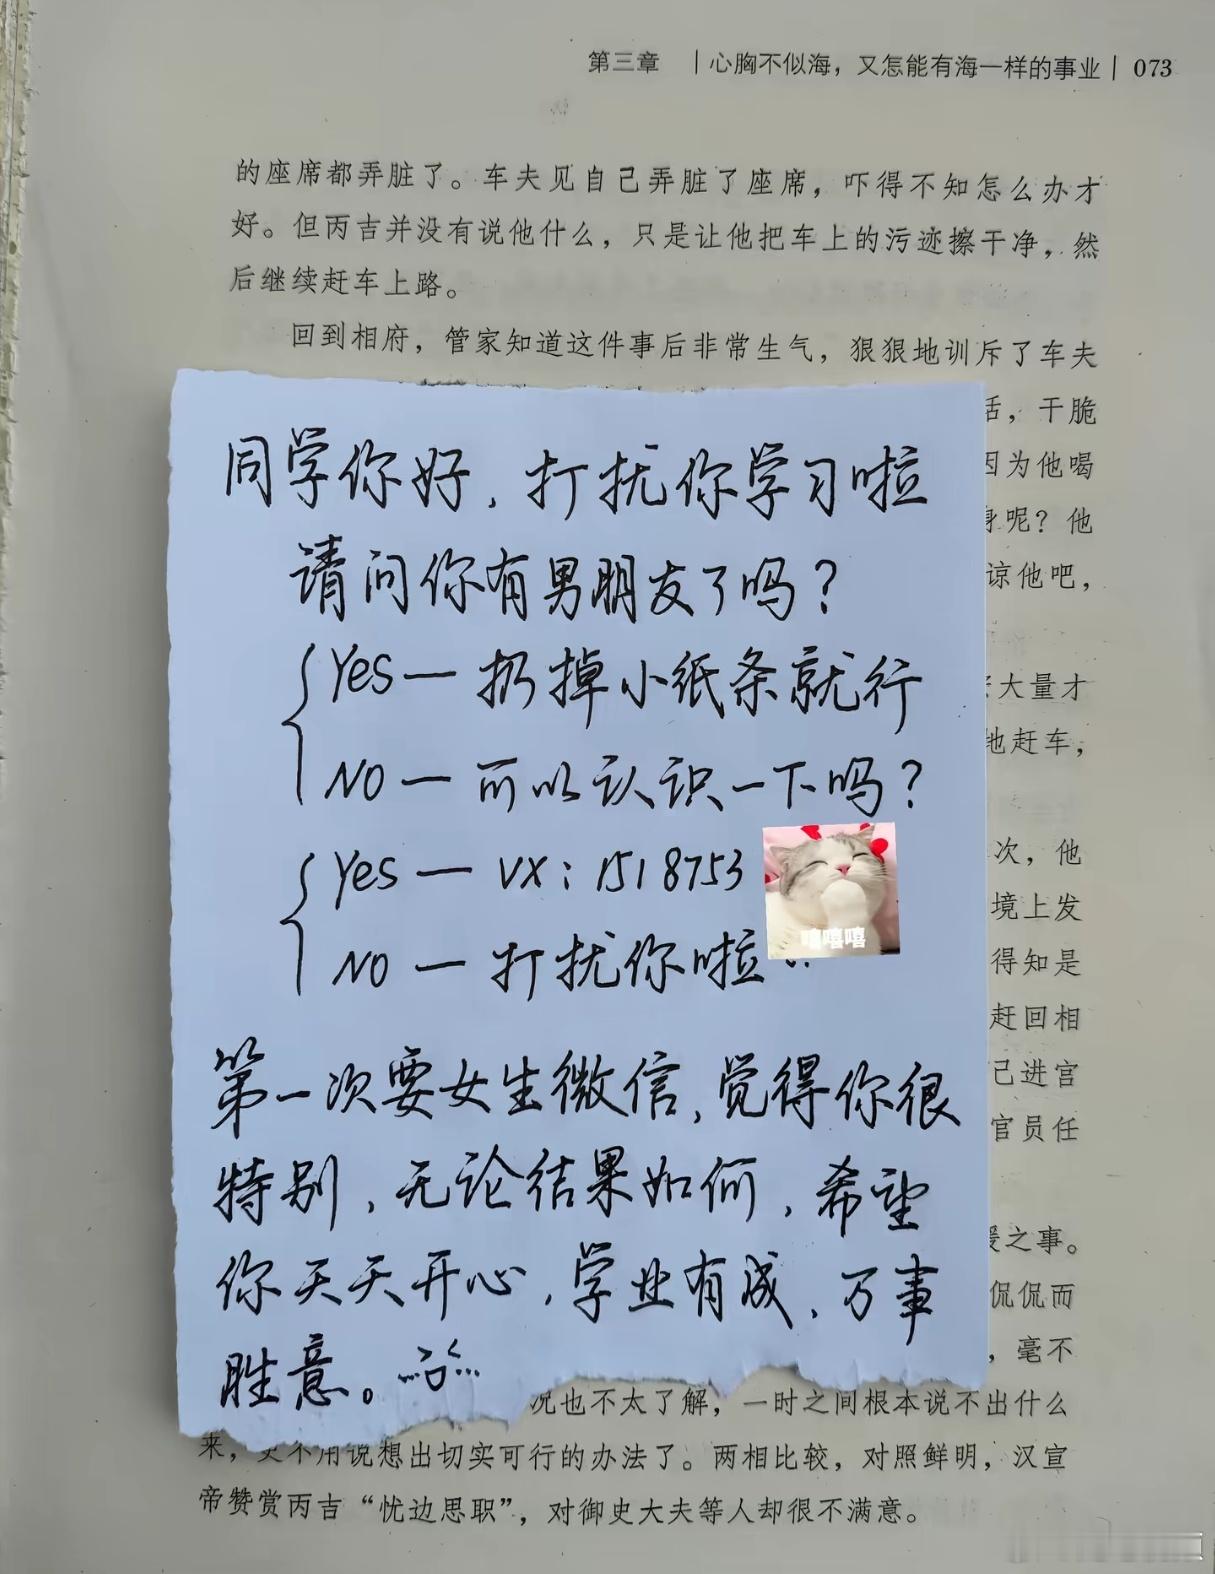 第三章 |心胸不似海，又怎能有海一样的事业| 073
的座席都弄脏了。车夫见自己弄脏了座席，吓得不知怎么办才
好。但丙吉并没有说他什么，只是让他把车上的污迹擦干净，然
后继续赶车上路。
回到相府，管家知道这件事后非常生气，狠狠地训斥了车夫
话，干脆
因为他喝
身呢？他
谅他吧，
大量才
地赶车，
次，他
境上发
得知是
赶回相
己进宫
官员任
之事。
侃侃而
，毫不
同学你好，打扰你学习啦
请问你有男朋友了吗？
Yes — 扔掉小纸条就行
NO — 可以认识一下吗？
Yes — VX：1518753
NO — 打扰你啦
嘻嘻嘻
第一次要女生微信，觉得你很
特别，无论结果如何，希望
你天天开心，学业有成，万事
胜意。
况也不太了解，一时之间根本说不出什么
来，更不用说想出切实可行的办法了。两相比较，对照鲜明，汉宣
帝赞赏丙吉“忧边思职”，对御史大夫等人却很不满意。